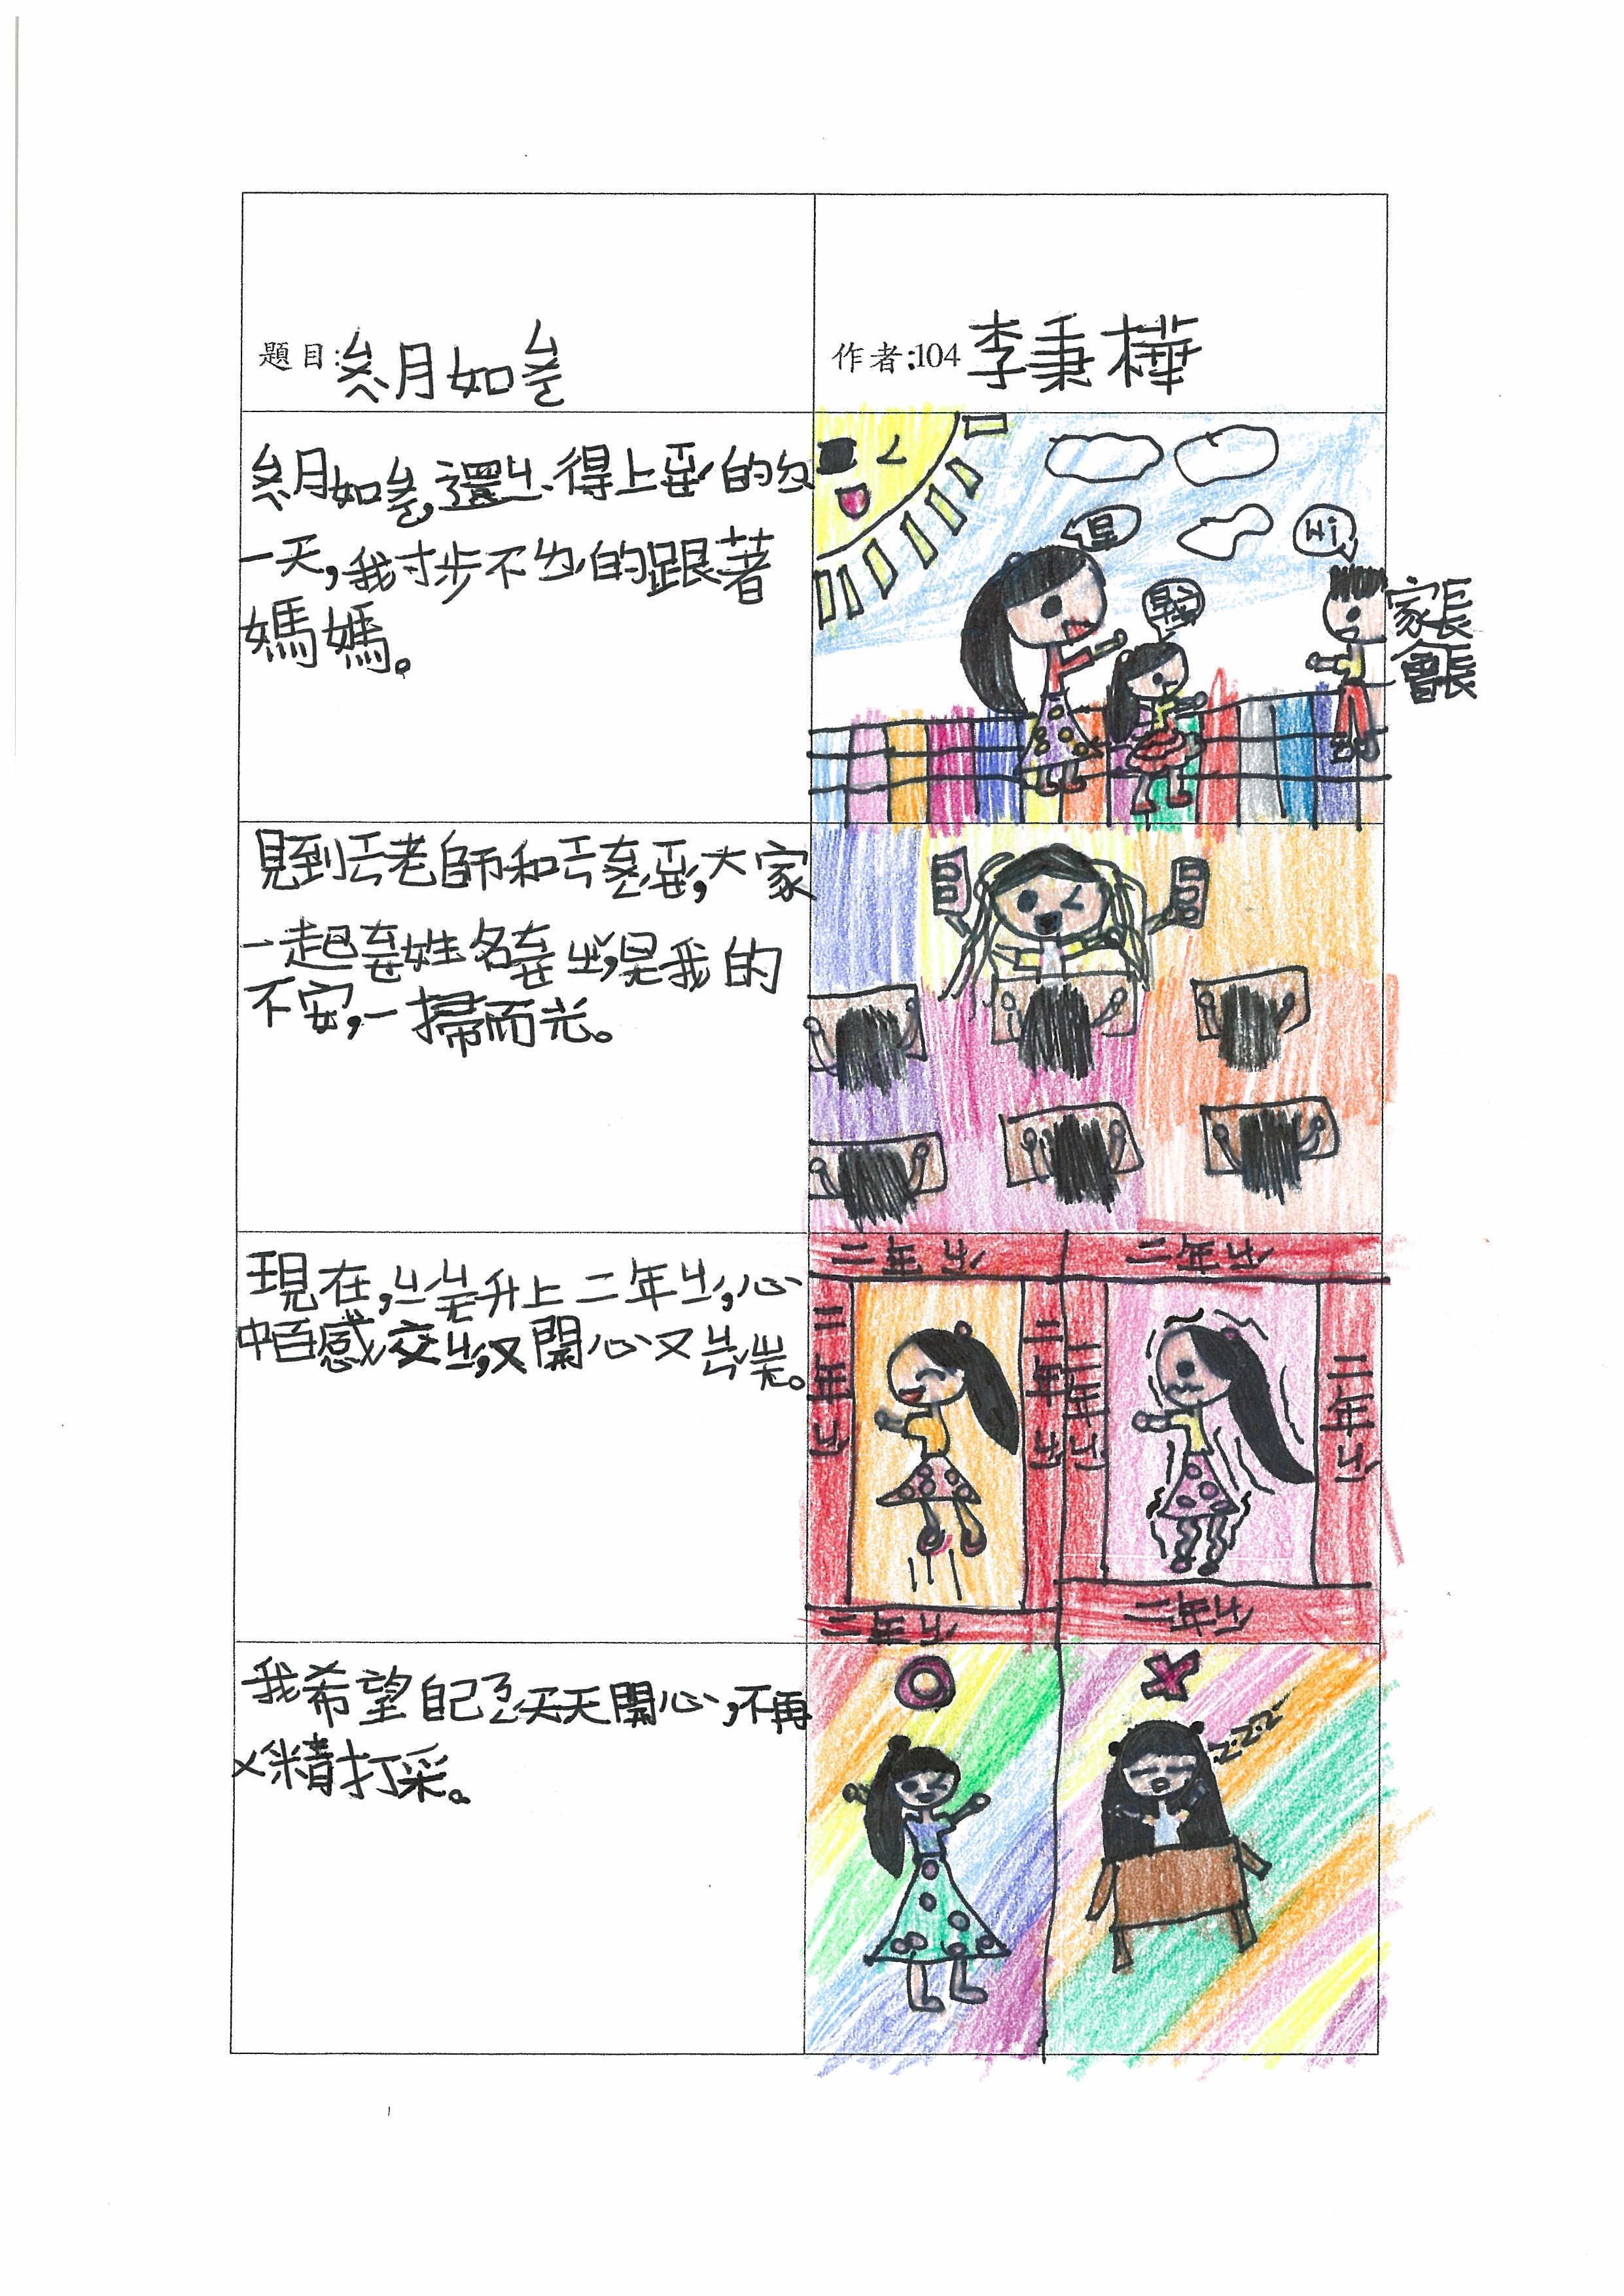 題目:ㄙㄨㄟˋ月如ㄙㄨㄛ
作者:104 李秉樺
ㄙㄨㄟˋ月如ㄙㄨㄛ,還ㄐㄧˋ得上ㄒㄩㄝˊ的ㄉㄧˋ
一天,我寸步不ㄌㄧˊ的跟著
媽媽。
早
Hi
家長
會長
見到老師和,大家
一起姓名,是我的
不安,一掃而光。
現在,升上二年ㄐㄧˊ,心
中百感交ㄐㄧˊ,又開心又。
二年ㄐㄧˊ
二年ㄐㄧˊ
二年ㄐㄧˊ
二年ㄐㄧˊ
二年ㄐㄧˊ
二年ㄐㄧˊ
二年ㄐㄧˊ
二年ㄐㄧˊ
我希望自己ㄋㄥˊ天天開心,不再
ㄨˊ精打采。
z.z.z.